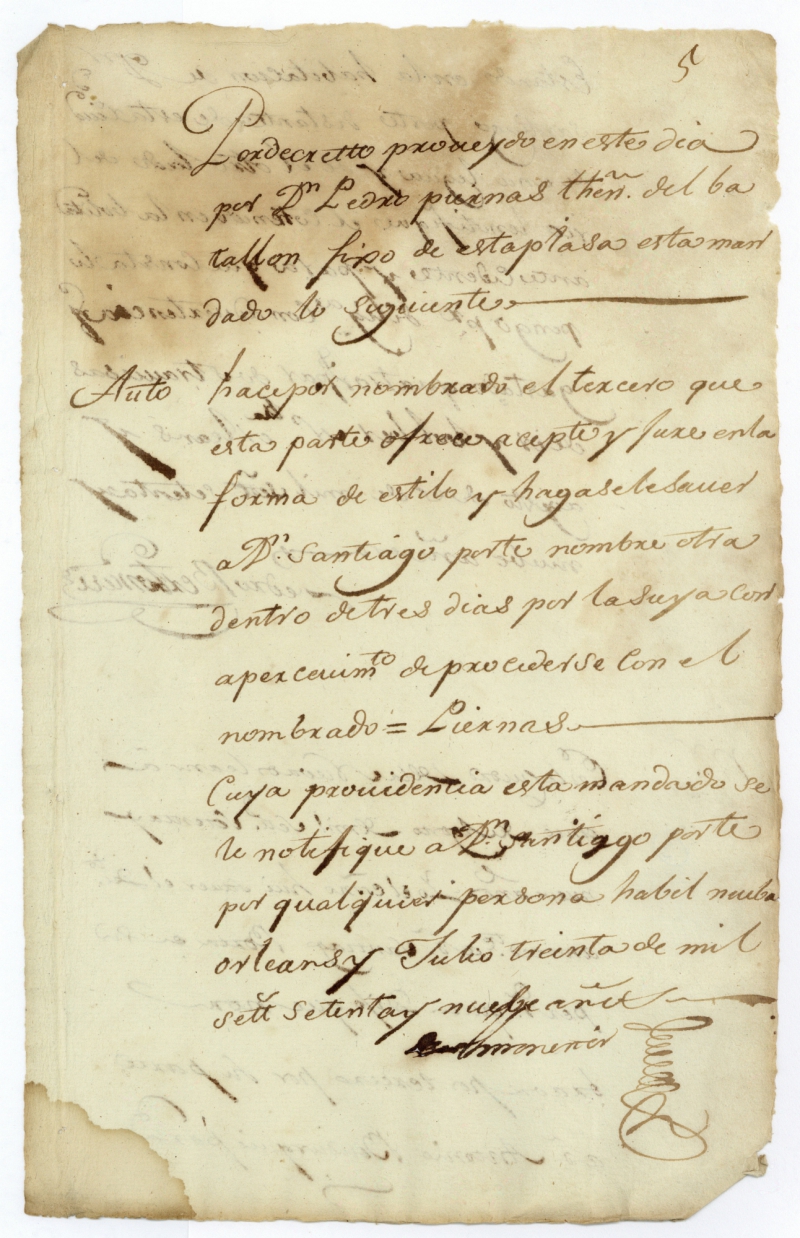 5
Pordecretto proveydo en este dia
por Dn Pedro piernas theñ. del ba
tallon fixo de estaplasa esta man
dado lo siguiente
Auto hace por nombrado el tercero que
esta parte ofrece acepte y jure enla
forma de estilo y hagaselesaver
a Dn. Santiago porte nombre otra
dentro detres dias por lasuya con
apercevimto de procederse con el
nombrado = Piernas
Cuya providencia esta mandado se
le notifique a Dn. Santiago porte
por qualquier persona habil nueba
orleans y Julio treinta de mil
sett setenta y nuebe añs